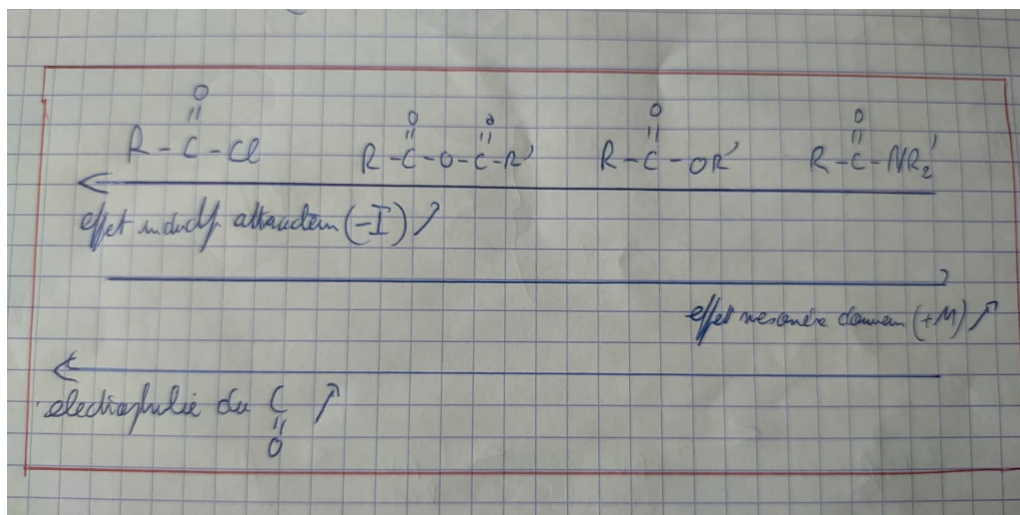 R-C(=O)-Cl R-C(=O)-O-C(=O)-R' R-C(=O)-OR' R-C(=O)-NR₂'
effet inductif attracteur (-I) ↗
effet mesomère donneur (+M) ↗
électrophilie du C=O ↗